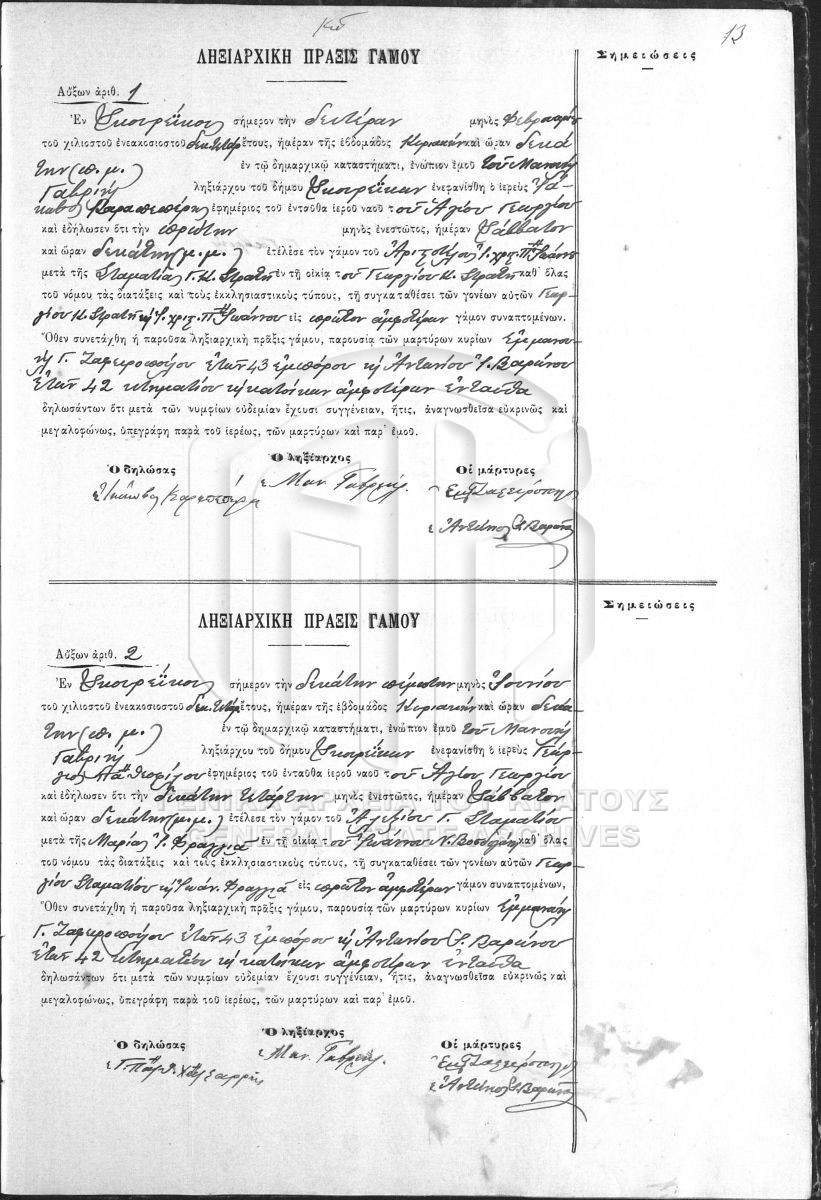 13
ΛΗΞΙΑΡΧΙΚΗ ΠΡΑΞΙΣ ΓΑΜΟΥ
Σημειώσεις
Αὔξων ἀριθ. 1
Ἐν Σκουρεΐκοις σήμερον τὴν δευτέραν μηνὸς Φεβρουαρίου
τοῦ χιλιοστοῦ ἐνεακοσιοστοῦ δεκ. τετάρ ἔτους, ἡμέραν τῆς ἑβδομάδος Κυριακὴν καὶ ὥραν δεκά
την (π. μ.) ἐν τῷ δημαρχικῷ καταστήματι, ἐνώπιον ἐμοῦ τοῦ Μανουὴλ
Γαβριὴλ ληξιάρχου τοῦ δήμου Σκουρεΐκων ἐνεφανίσθη ὁ ἱερεὺς Ἰά-
κωβος Καραπιπέρης ἐφημέριος τοῦ ἐνταῦθα ἱεροῦ ναοῦ τοῦ Ἁγίου Γεωργίου
καὶ ἐδήλωσεν ὅτι τὴν πρώτην μηνὸς ἐνεστῶτος, ἡμέραν Σάββατον
καὶ ὥραν δεκάτην (μ. μ.) ἐτέλεσε τὸν γάμον τοῦ Ἀριστοτέλους
μετὰ τῆς Σταματίας Γ. Κ. Στρατῆ ἐν τῇ οἰκίᾳ τοῦ Γεωργίου Κ. Στρατῆ καθ᾽ ὅλας
τοῦ νόμου τὰς διατάξεις καὶ τοὺς ἐκκλησιαστικοὺς τύπους, τῇ συγκαταθέσει τῶν γονέων αὐτῶν Γεωρ-
γίου Κ. Στρατῆ Ἰωάννου εἰς πρῶτον ἀμφοτέρων γάμον συναπτομένων.
Ὅθεν συνετάχθη ἡ παροῦσα ληξιαρχικὴ πρᾶξις γάμου, παρουσίᾳ τῶν μαρτύρων κυρίων Ἐμμανου-
ὴλ Γ. Ζαφειροπούλου ἐτῶν 43 ἐμπόρου κὴ Ἀντωνίου Ἰ. Βαρώνου
ἐτῶν 42 κτηματίου κὴ κατοίκων ἀμφοτέρων ἐνταῦθα
δηλωσάντων ὅτι μετὰ τῶν νυμφίων οὐδεμίαν ἔχουσι συγγένειαν, ἥτις, ἀναγνωσθεῖσα εὐκρινῶς καὶ
μεγαλοφώνως, ὑπεγράφη παρὰ τοῦ ἱερέως, τῶν μαρτύρων καὶ παρ᾽ ἐμοῦ.
Ὁ δηλώσας
Ὁ ληξίαρχος
Οἱ μάρτυρες
Μαν. Γαβριὴλ
ΛΗΞΙΑΡΧΙΚΗ ΠΡΑΞΙΣ ΓΑΜΟΥ
Σημειώσεις
Αὔξων ἀριθ. 2
Ἐν Σκουρεΐκοις σήμερον τὴν δεκάτην πέμπτην μηνὸς Ἰουνίου
τοῦ χιλιοστοῦ ἐνεακοσιοστοῦ δεκ. τετάρ ἔτους, ἡμέραν τῆς ἑβδομάδος Κυριακὴν καὶ ὥραν δεκά
την (π. μ.) ἐν τῷ δημαρχικῷ καταστήματι, ἐνώπιον ἐμοῦ τοῦ Μανουὴλ
Γαβριὴλ ληξιάρχου τοῦ δήμου Σκουρεΐκων ἐνεφανίσθη ὁ ἱερεὺς Γεώρ-
γιος ἐφημέριος τοῦ ἐνταῦθα ἱεροῦ ναοῦ τοῦ Ἁγίου Γεωργίου
καὶ ἐδήλωσεν ὅτι τὴν δεκάτην τετάρτην μηνὸς ἐνεστῶτος, ἡμέραν Σάββατον
ΓΕΝΙΚΑ ΑΡΧΕΙΑ ΤΟΥ ΚΡΑΤΟΥΣ
καὶ ὥραν δεκάτην (μ. μ.) ἐτέλεσε τὸν γάμον τοῦ Γ. Σταματίου
GENERAL STATE ARCHIVES
μετὰ τῆς Μαρίας Ἰ. Φραγγιᾶ ἐν τῇ οἰκίᾳ τοῦ Ἰωάννου Ν. καθ᾽ ὅλας
τοῦ νόμου τὰς διατάξεις καὶ τοὺς ἐκκλησιαστικοὺς τύπους, τῇ συγκαταθέσει τῶν γονέων αὐτῶν Γεωρ-
γίου Σταματίου κὴ Ἰωάν. Φραγγιᾶ εἰς πρῶτον ἀμφοτέρων γάμον συναπτομένων,
Ὅθεν συνετάχθη ἡ παροῦσα ληξιαρχικὴ πρᾶξις γάμου, παρουσίᾳ τῶν μαρτύρων κυρίων Ἐμμανουὴλ
Γ. Ζαφειροπούλου ἐτῶν 43 ἐμπόρου κὴ Ἀντωνίου Ἰ. Βαρώνου
ἐτῶν 42 κτηματίου κὴ κατοίκων ἀμφοτέρων ἐνταῦθα
δηλωσάντων ὅτι μετὰ τῶν νυμφίων οὐδεμίαν ἔχουσι συγγένειαν, ἥτις, ἀναγνωσθεῖσα εὐκρινῶς καὶ
μεγαλοφώνως, ὑπεγράφη παρὰ τοῦ ἱερέως, τῶν μαρτύρων καὶ παρ᾽ ἐμοῦ.
Ὁ δηλώσας
Ὁ ληξίαρχος
Οἱ μάρτυρες
Μαν. Γαβριὴλ